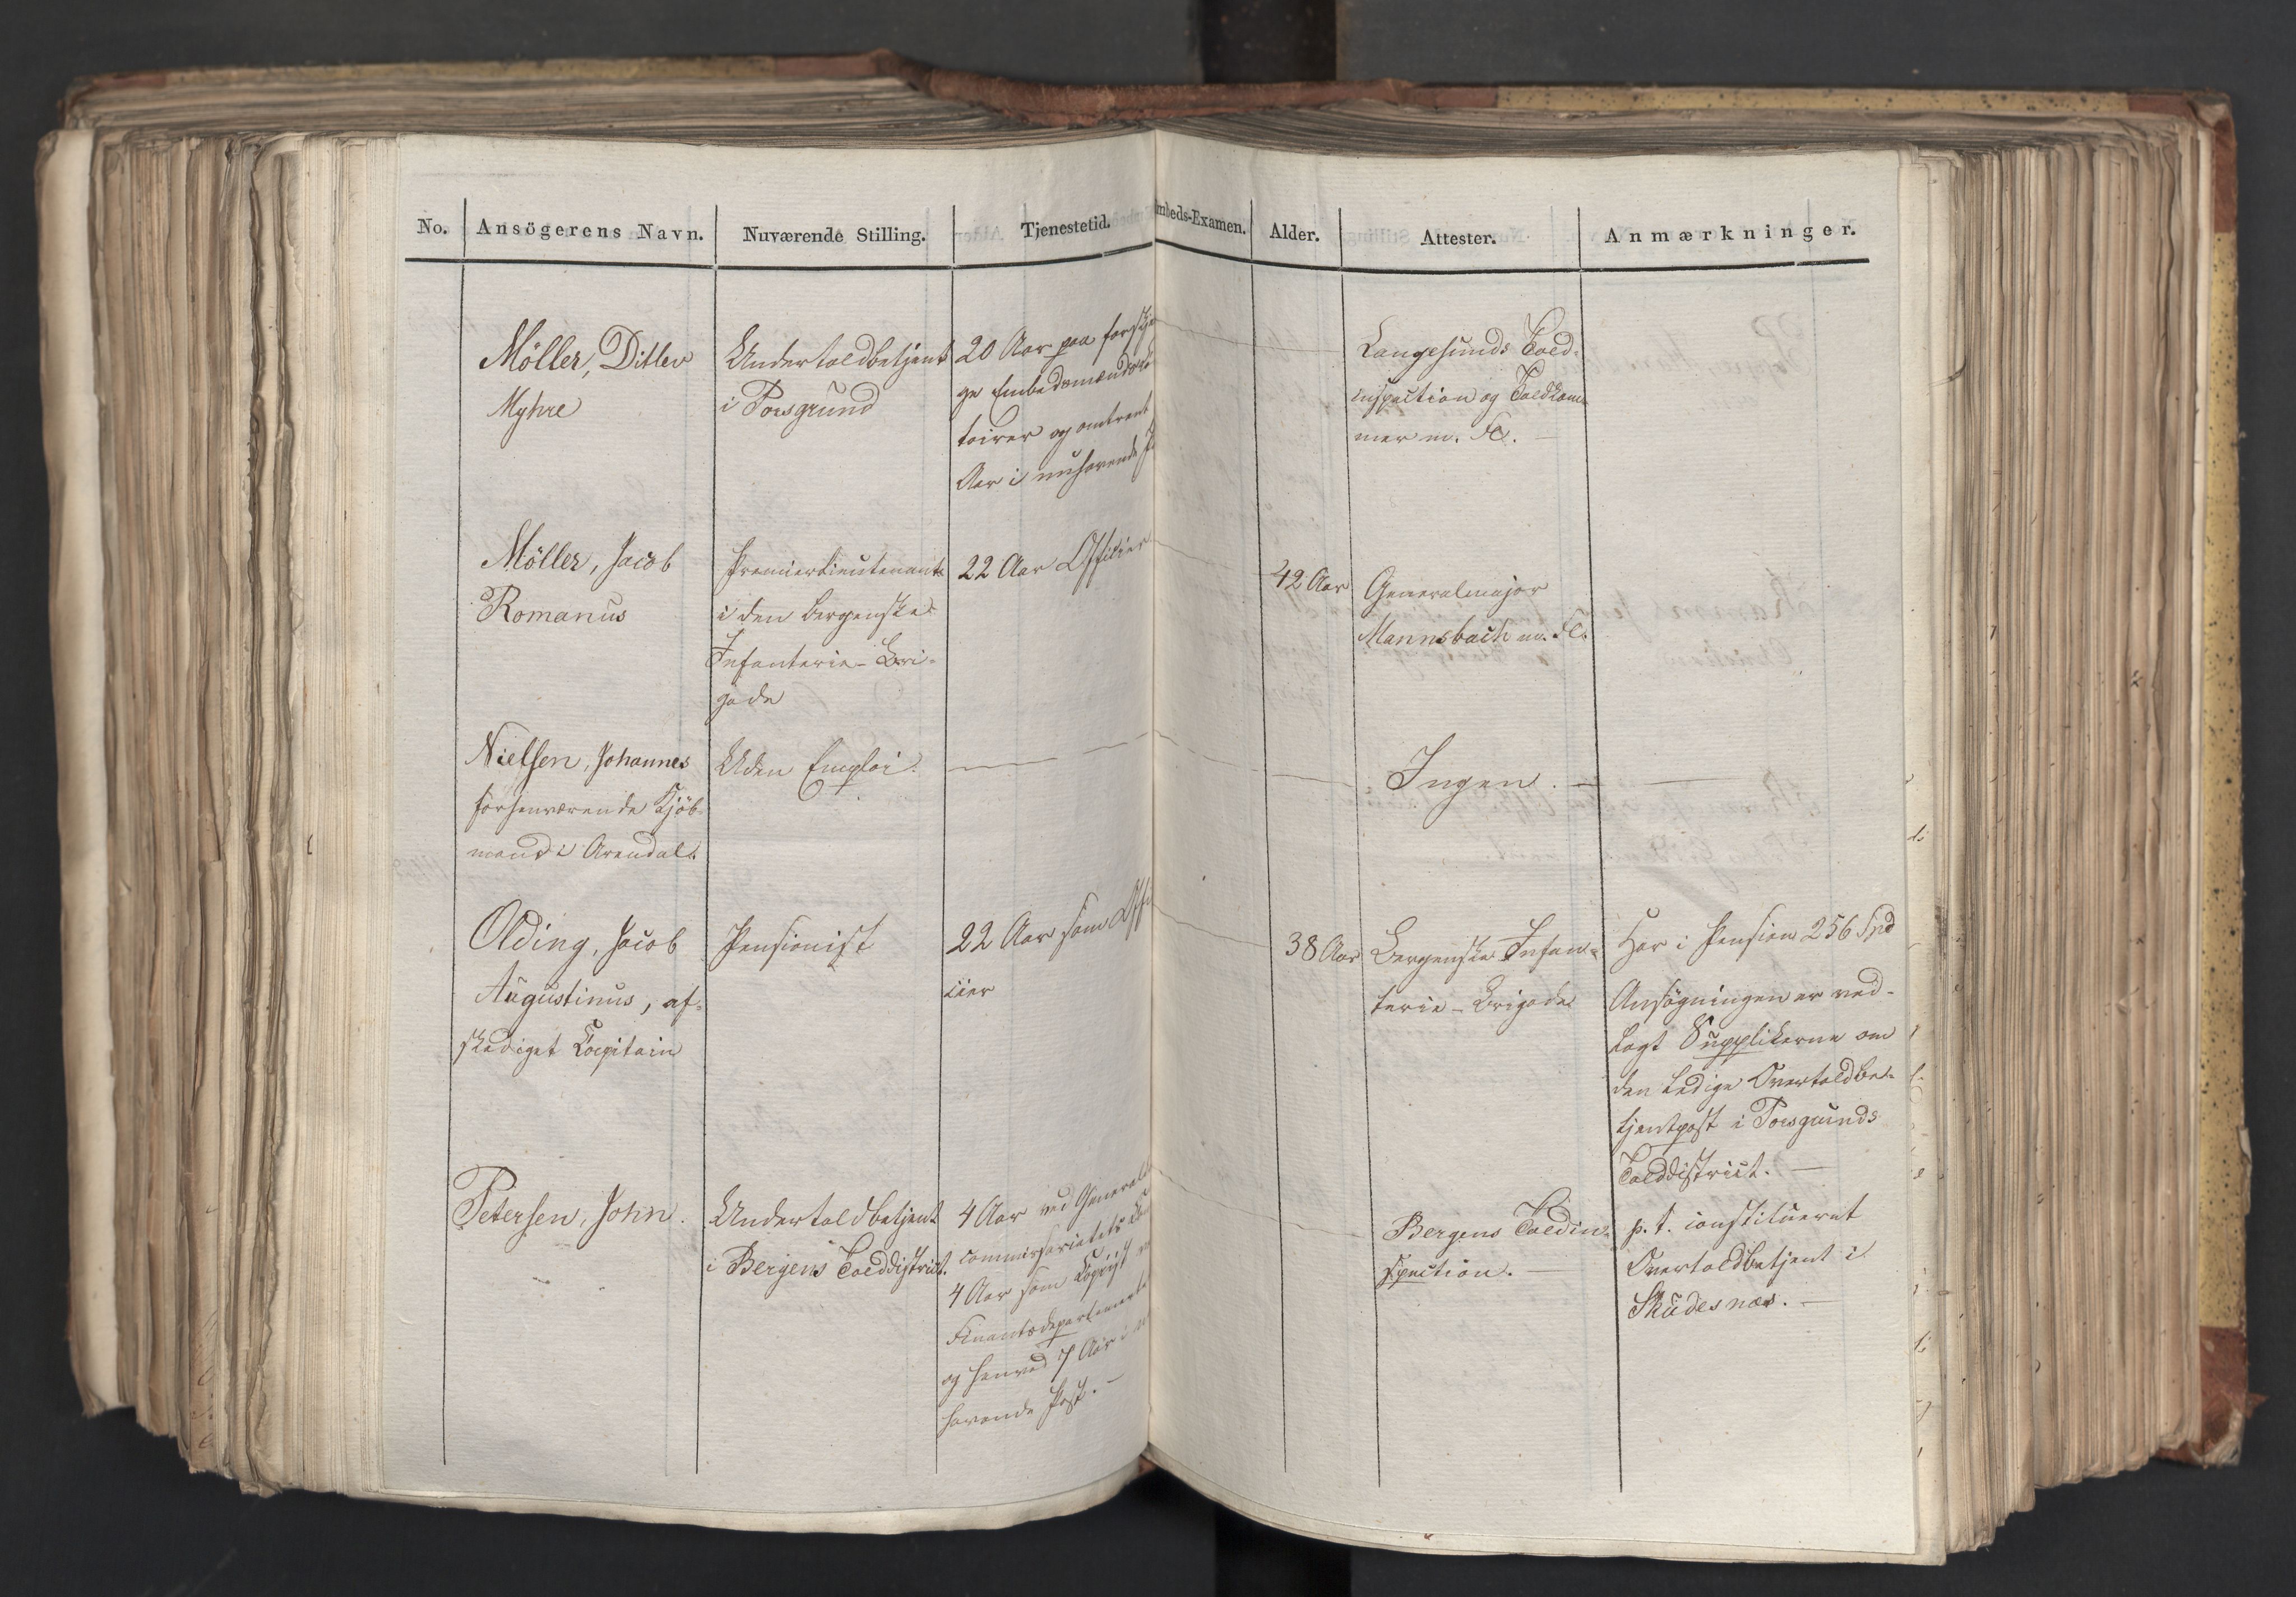 No. Ansögerens Navn. Nuværende Stilling. Tjenestetid. mbeds-Examen. Alder. Attester. Anmærkninger.
Möller, Ditlev
Myhre
Undertoldbetjent
i Porsgrund
20 Aar paa forskje
ge Embedsmænds
toirer og omtrent
Aar i nuhavende
Langesunds Told-
inspection og Toldkam
mer m. fl. —
Möller, Jacob
Romanus
Premierlieutenant
i den bergenske
Infanterie-Bri-
gade
22 Aar Officier
42 Aar
Generalmajor
Mannsbach m. fl.
Nielsen, Johannes
forhenværende Kjöb-
mand i Arendal.
Uden Emploi.
Ingen. —
Olding, Jacob
Augustinus, af-
skediget Capitain
Pensionist
22 Aar som Offi
cier
38 Aar
Bergenske Infan-
terie-Brigade
Har i Pension 256 Spd
Ansögningen er ved-
lagt Supplikerne om
den ledige Overtoldbe-
tjentpost i Porsgrunds
Tolddistrict. —
Petersen, John.
Undertoldbetjent
i Bergens Tolddistrict.
4 Aar ved General
commissariatets
4 Aar som Copiist
Finantsdepartementet
og henved 7 Aar i
havende Post. —
Bergens Toldin-
spection. —
p. t. constitueret
Overtoldbetjent i
Skudesnæs. —